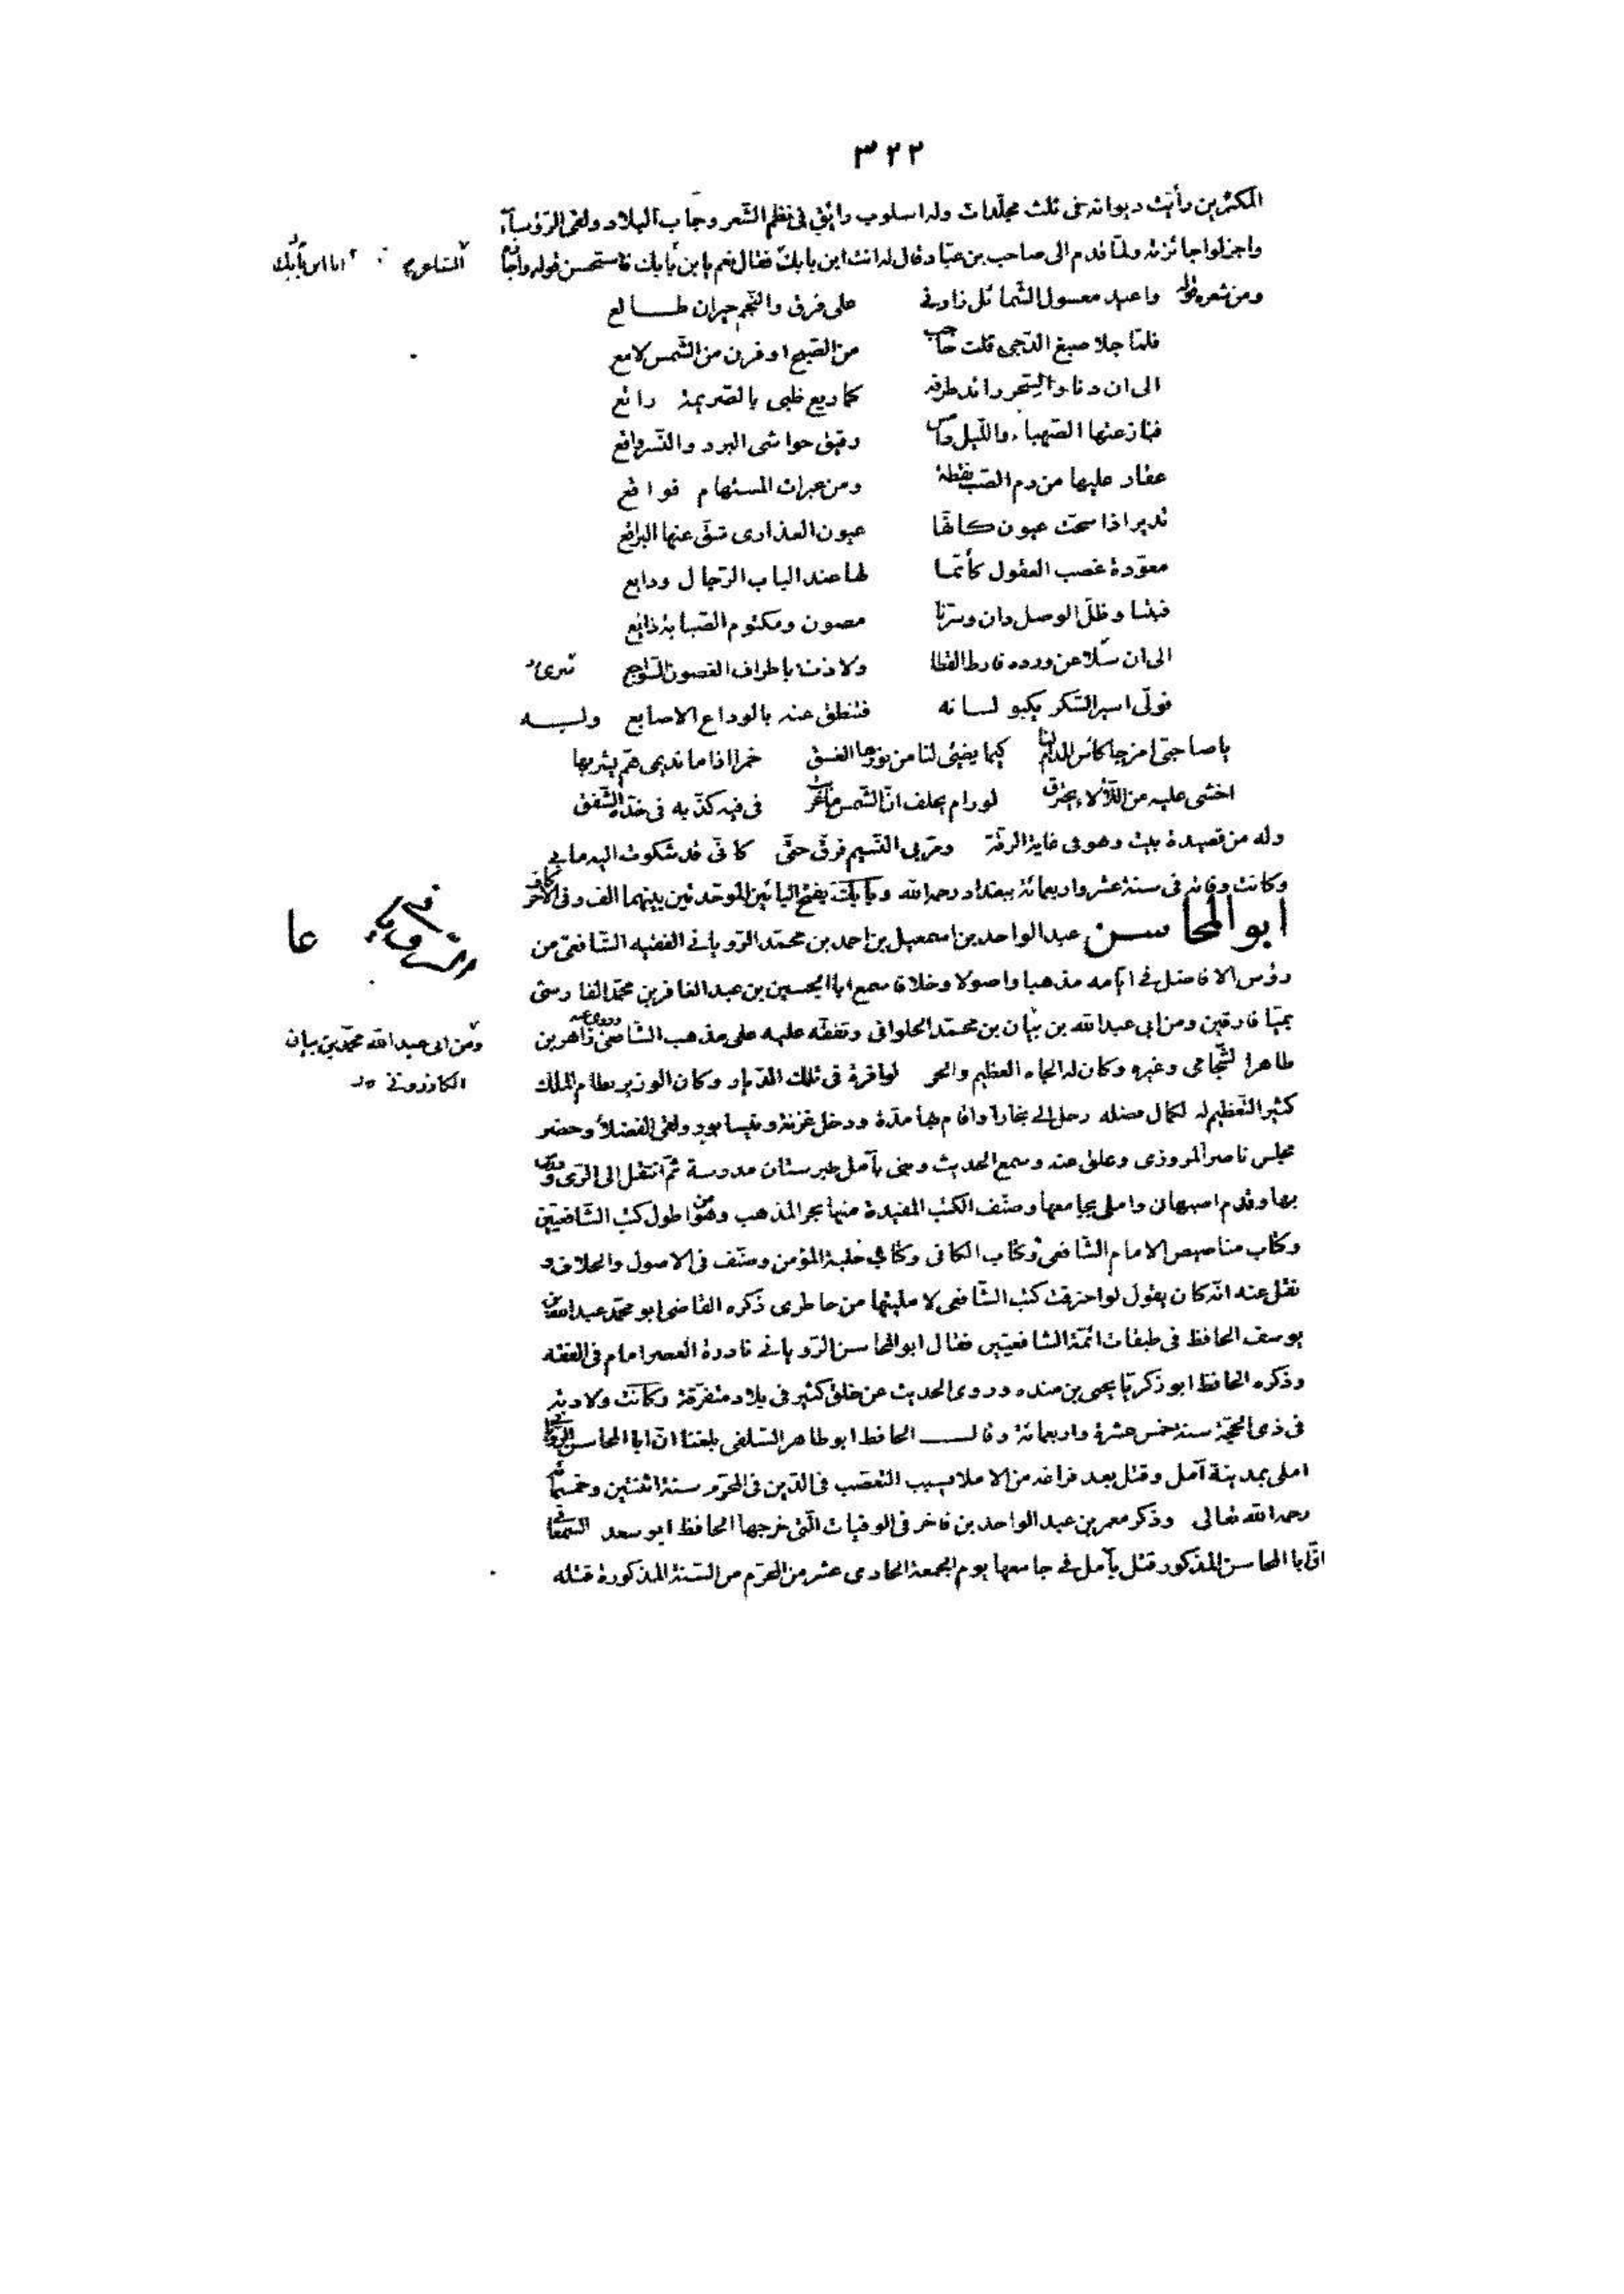 ٣٢٢
المكثرين رأيت ديوانه فى ثلث مجلّدات وله اسلوب رايق فى نظم الشّعر وجاب البلاد ولقى الرّؤسآء
واجزلوا جائزته ولمّا قدم الى صاحب بن عبّاد قال له انت ابن بابك فقال نعم يا بن بابك فاستحسن قوله واجازه
الشاعر انا ابن بابك
ومن شعره قوله واغيد معسول الشّمائل زارنى على فرق والنّجم حيران طالع
فلمّا جلا صبغ الدّجى قلت حاجب من الصّبح او قرن من الشّمس لامع
الى ان دنا والسّحر رائد طرفه كما ريع ظبى بالصّريمة رائع
فنازعتها الصّهباء والليل دامس رقيق حواشى البرد والنّسر واقع
عقار عليها من دم الصّب نقطة ومن عبرات المستهام فواقع
تدير اذا سحّت عيون كانّها عيون العذارى شقّ عنها البراقع
معوّدة غصب العقول كأنّما لها عند الباب الرّجال ودايع
فبتنا وظلّ الوصل دان وسرّنا مصون ومكتوم الصّبابة ذائع
الى ان سلا عن ورده فارط القطا ولاذت باطراف الغصون السّواجع
فولّى اسير السّكر يكبو لسانه فتنطق عنه بالوداع الاصابع وله
يا صاحبىّ امزجا كاس المدام لنا كيما يضيئ لنا من نورها الغسق خمرا اذا ما نديمى همّ يشربها
اخشى عليه من اللّألاء يحترق لو رام يحلف انّ الشّمس ما غربت فى فيه كذّبه فى خدّه الشّفق
وله من قصيدة بيت وهو فى غاية الرقّة ومرّ بى النّسيم فرقّ حتّى كانّى قد شكوت اليه ما بى
وكانت وفاته فى سنة عشر واربعمائة ببغداد رحمه الله وبابك بفتح البائين الموحّدتين بينهما الف وفى الآخر كاف
ابو المحاسن عبد الواحد بن اسمعيل بن احمد بن محمّد الرّويانى الفقيه الشّافعىّ من
رؤس الافاضل فى ايّامه مذهبا واصولا وخلافا سمع ابا الحسين بن عبد الغافر بن محمّد الفارسىّ
بميّافارقين ومن ابى عبد الله بن بيان بن محمّد الحلوانى وتفقّه عليه على مذهب الشّافعى وروى عنه زاهر بن
ومن ابى عبد الله محمّد بن بيان
الكازرونى
طاهر الشّجامى وغيره وكان له الجاه العظيم والحر لوافرة فى تلك الدّيار وكان الوزير نظام الملك
كثير التّعظيم له لكمال فضله رحل الى بخارا واقام بها مدّة ودخل غزنة ونيسابور ولقى الفضلاء وحضر
مجلس ناصر المروزى وعلق عنه وسمع الحديث وبنى بآمل طبرستان مدرسة ثمّ انتقل الى الرّى ودرّس
بها وقدم اصبهان واملى بجامعها وصنّف الكتب المفيدة منها بحر المذهب وهو من اطول كتب الشّافعيّين
وكتاب مناصيص الامام الشّافعى وكتاب الكافى وكتاب حلية المؤمن وصنّف فى الاصول والخلاف و
نقل عنه انّه كان يقول لو احترقت كتب الشّافعى لا مليتها من خاطرى ذكره القاضى ابو محمّد عبد الله بن
يوسف الحافظ فى طبقات ائمّة الشافعيّين فقال ابو المحاسن الرّويانى نادرة العصر امام فى الفقه
وذكره الحافظ ابو زكريّا يحيى بن منده وروى الحديث عن خلق كثير فى بلاد متفرّقة وكانت ولادته
فى ذى الحجّة سنة خمس عشرة واربعمائة وقال الحافظ ابو طاهر السّلفى بلغنا انّ ابا المحاسن الرّويانى
املى بمدينة آمل وقتل بعد فراغه من الاملا بسبب التّعصّب فى الدّين فى المحرّم سنة اثنتين وخمسمائة
رحمه الله تعالى وذكر معمر بن عبد الواحد بن فاخر فى الوفيات الّتى خرجها الحافظ ابو سعد السّمعانى
انّ ابا المحاسن المذكور قتل بآمل فى جامعها يوم الجمعة الحادى عشر من المحرّم من السّنة المذكورة قتله